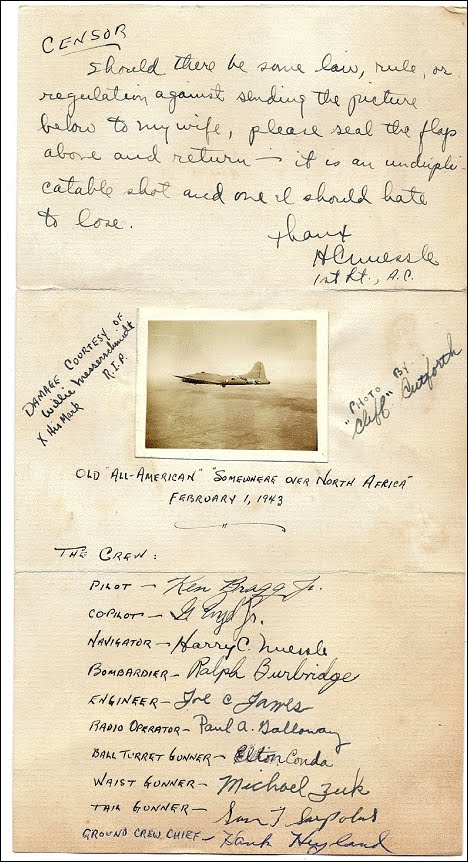 CENSOR
Should there be some law, rule, or
regulation against sending the picture
below to my wife, please seal the flaps
above and return — it is an undupli-
catable shot and one I should hate
to lose.
thanx
HCNuessle
1st Lt., A.C.
DAMAGE COURTESY OF
Willie Messerschmidt
X His Mark
R.I.P.
"PHOTO BY
"Cliff" Cutforth
OLD "ALL-AMERICAN" "SOMEWHERE OVER NORTH AFRICA"
FEBRUARY 1, 1943
THE CREW:
PILOT — Ken Bragg Jr.
COPILOT — G Jr.
NAVIGATOR — Harry C. Nuessle
BOMBARDIER — Ralph Burbridge
ENGINEER — Joe C James
RADIO OPERATOR — Paul A. Galloway
BALL TURRET GUNNER — Elton Conda
WAIST GUNNER — Michael Zuk
TAIL GUNNER — Sam T Sarpolus
GROUND CREW CHIEF — Hank Hyland